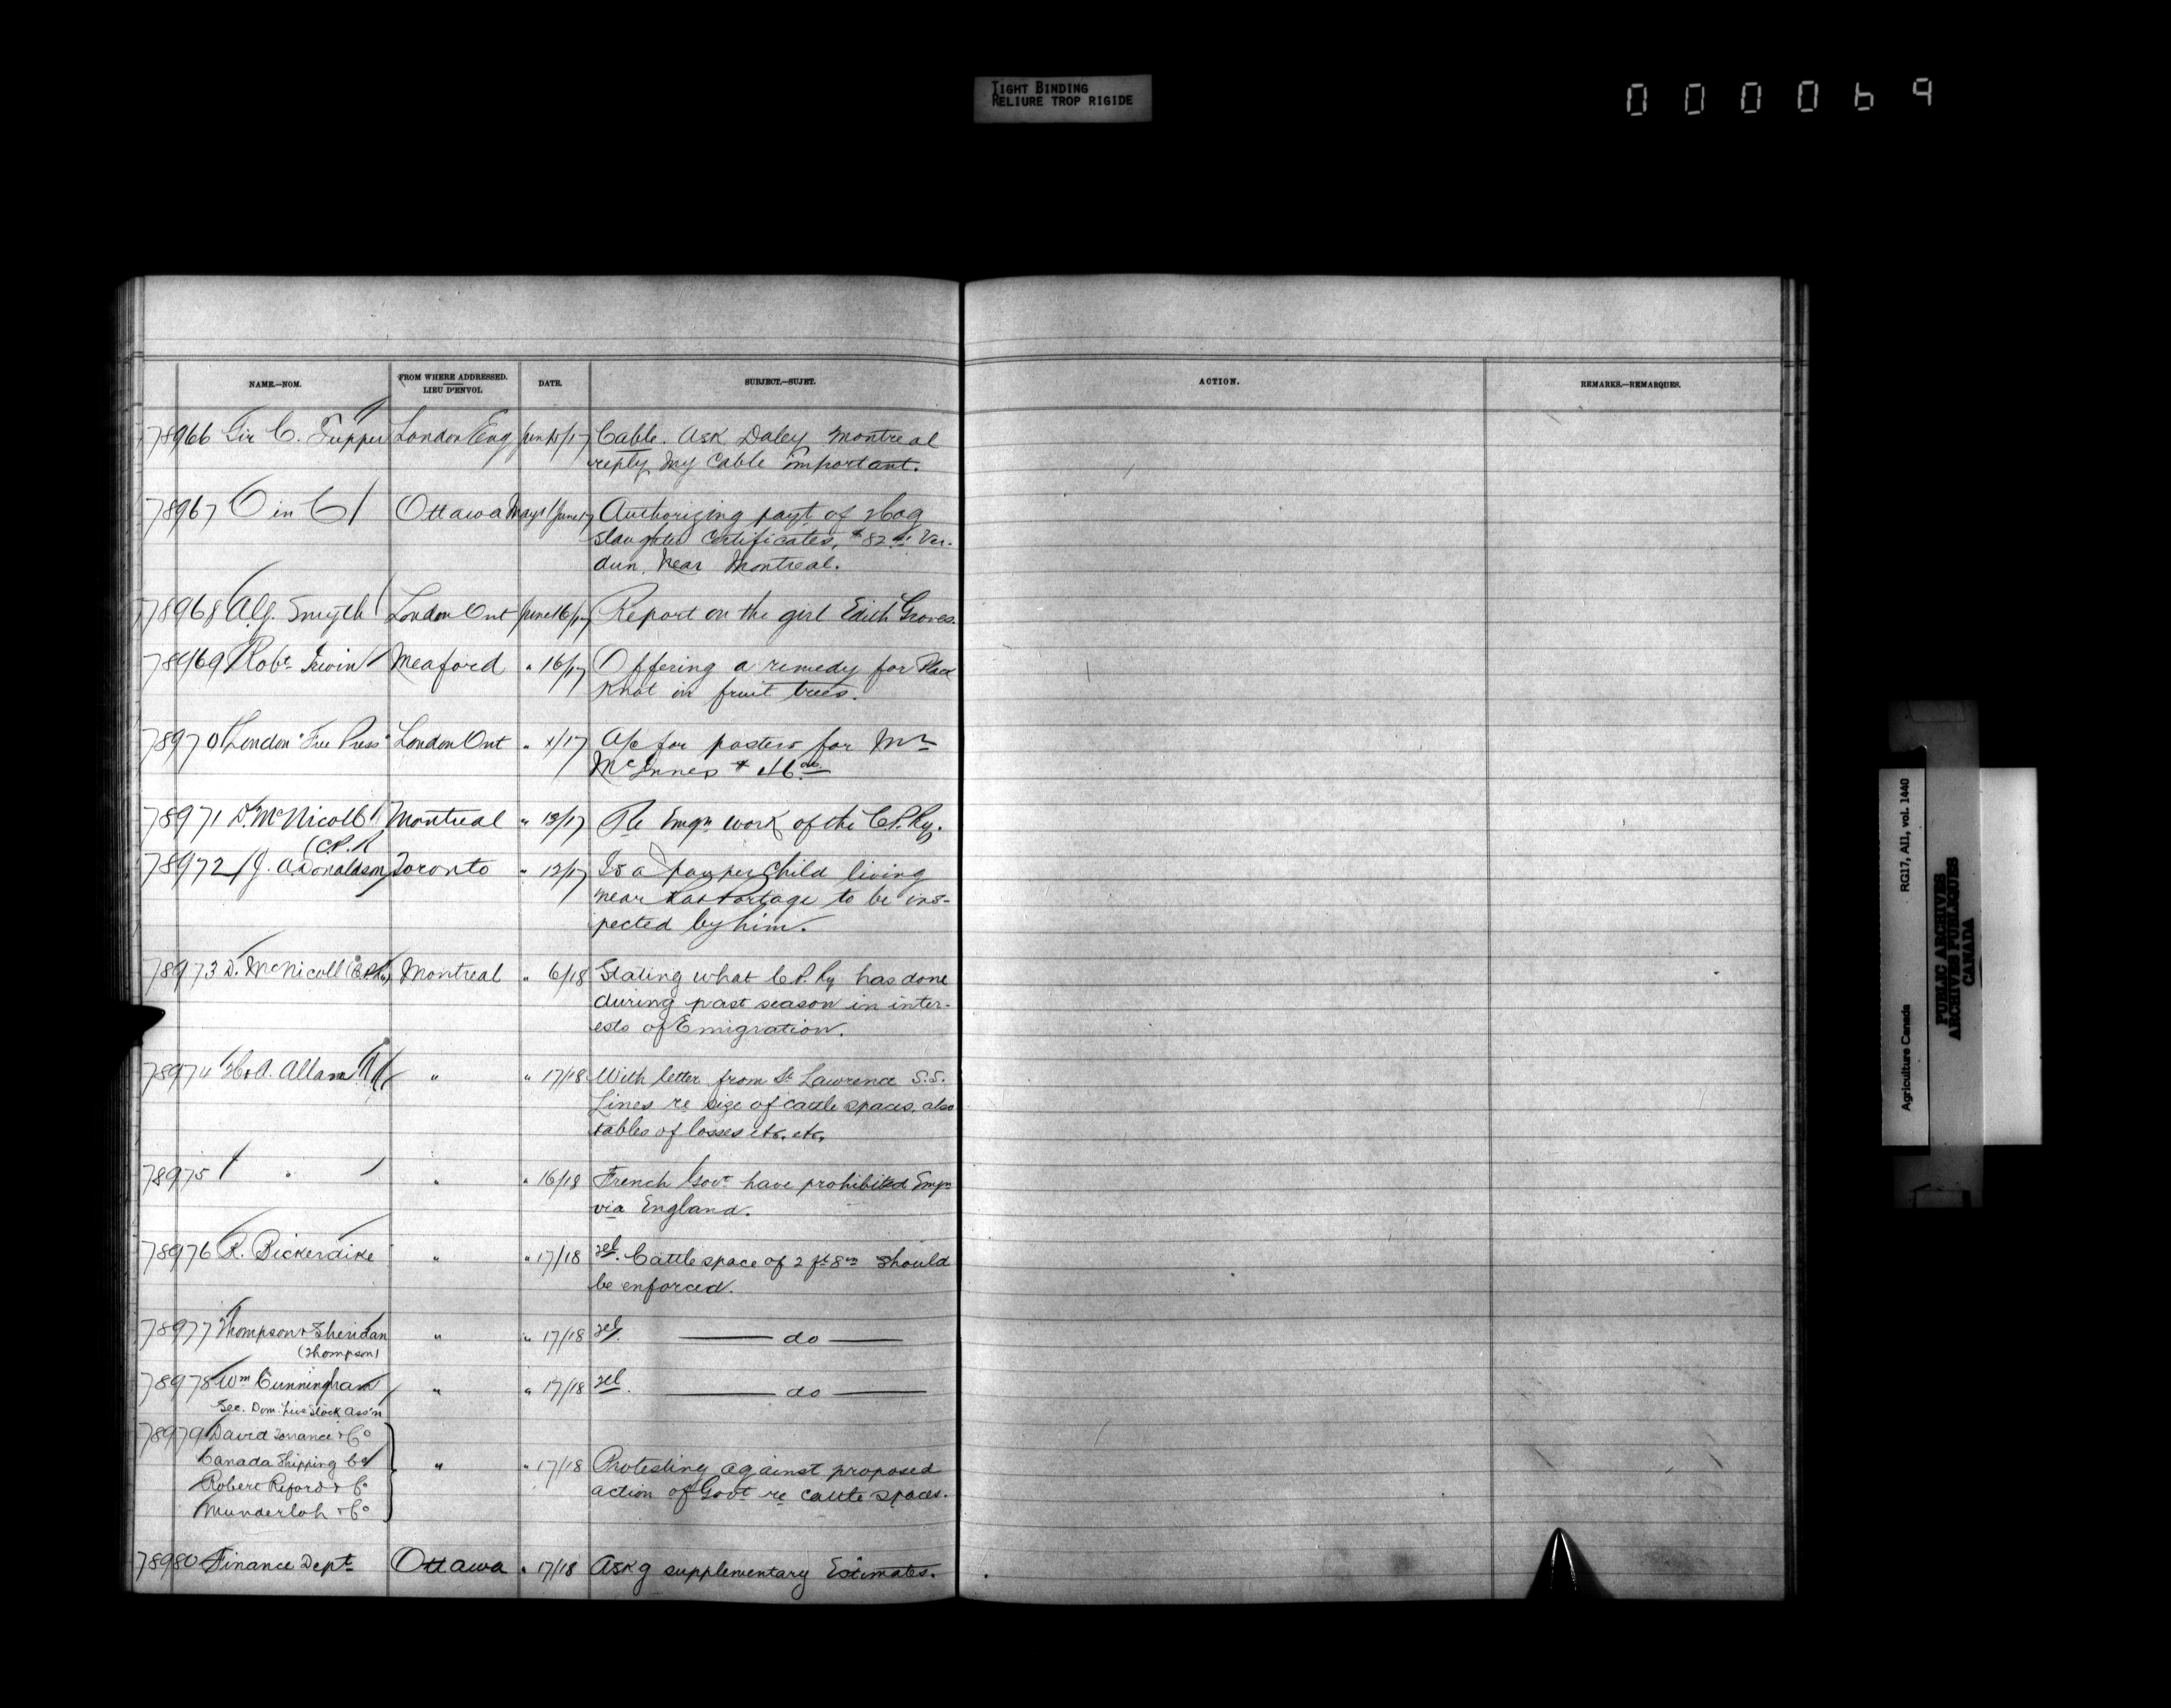 TIGHT BINDING
RELIURE TROP RIGIDE
000069
NAME.—NOM. FROM WHERE ADDRESSED. LIEU D'ENVOI. DATE. SUBJECT.—SUJET. ACTION. REMARKS.—REMARQUES.
78966 Sir C. Tupper London Eng June 15/17 Cable. Ask Daley Montreal
reply my cable important.
78967 O in C Ottawa May /June 17 Authorizing payt of Hog
slaughter certificates, $82 Ver-
dun, near Montreal.
78968 A.G. Smyth London Ont June 16/17 Report on the girl Edith Groves.
78969 Robt. Irwin Meaford " 16/17 Offering a remedy for Black
Knot in fruit trees.
78970 London "Free Press" London Ont " x/17 A/c for posters for Mr
McInnes $
78971 D. McNicoll Montreal " 13/17 Re Emgn work of the C.P. Ry.
(C.P.R
78972 J. A Donaldson Toronto " 12/17 Is a pauper child living
near Rat Portage to be ins-
pected by him.
78973 D. McNicoll (C.P. Ry) Montreal " 6/18 Stating what C.P. Ry has done
during past season in inter-
ests of Emigration.
78974 H & A. Allan " " 17/18 With letter from St Lawrence S.S.
Lines re size of cattle spaces, also
tables of losses etc. etc.
78975 " " " 16/18 French Govt have prohibited Emgn
via England.
78976 R. Bickerdike " " 17/18 Tel. Cattle space of 2 ft 8 in should
be enforced.
78977 Thompson & Sheridan " " 17/18 Tel. do
(Thompson)
78978 Wm Cunningham " " 17/18 Tel. do
Sec. Dom. Live Stock Ass'n
78979 David Torrance & Co
Canada Shipping Co " " 17/18 Protesting against proposed
Robert Reford & Co action of Govt re cattle spaces.
Munderloh & Co
78980 Finance Dept Ottawa " 17/18 Askg supplementary Estimates.
Agriculture Canada RG17, AI1, vol. 1440
PUBLIC ARCHIVES
ARCHIVES PUBLIQUES
CANADA